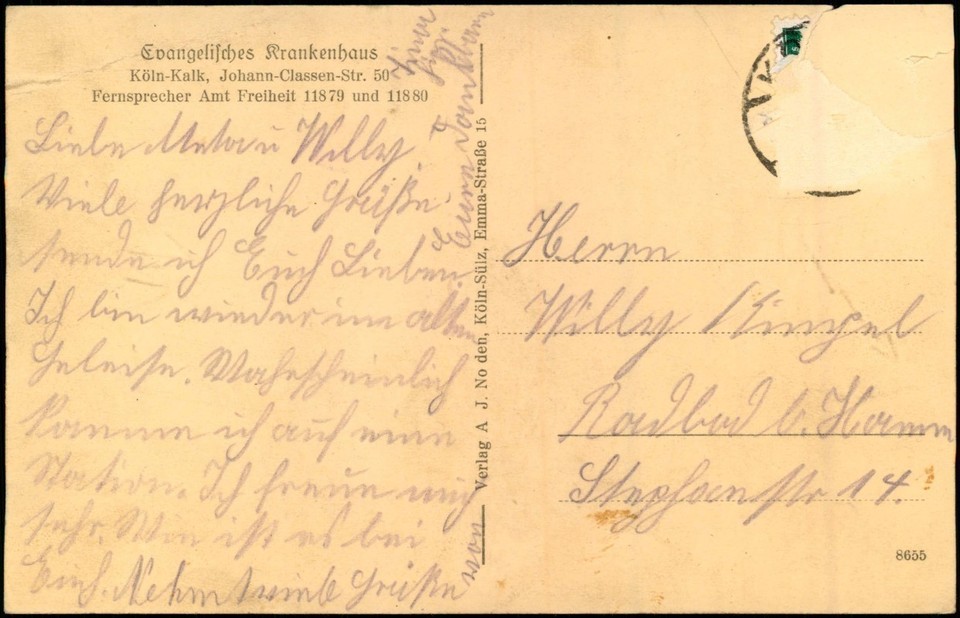 Evangelisches Krankenhaus
Köln-Kalk, Johann-Classen-Str. 50
Fernsprecher Amt Freiheit 11879 und 11880
Liebe Meta u Willy.
Viele herzliche Grüße
sende ich Euch Lieben.
Ich bin wieder im alten
Geleise. Wahrscheinlich
komme ich auf eine
Station. Ich freue mich
sehr. Wie ist es bei
Euch. Nehmt viele Grüße
von
Eure
Verlag A. J. Noden, Köln-Sülz, Emma-Straße 15
Herrn
Willy
Radbod b. Hamm
Stephanstr 14.
8655